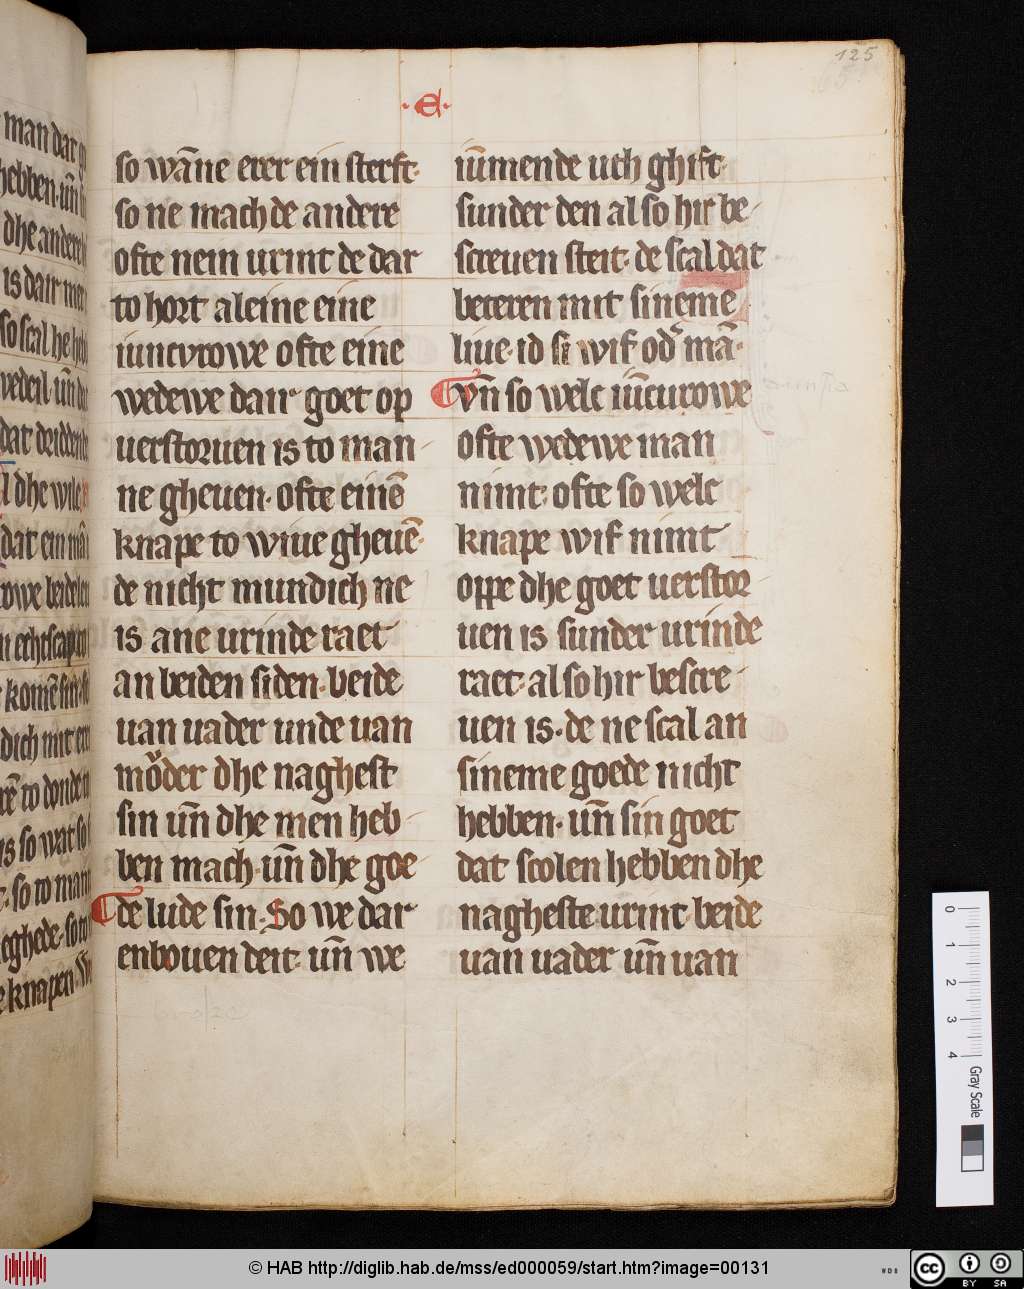 125
·e·
so wāne erer ein sterft·
so ne mach de andere
ofte nein urint de dar
to hort aleine eine
iuncvrowe ofte eine
wedewe dair goet op
uerstoruen is to man-
ne gheuen· ofte einē
knape to wiue gheuē·
de nicht mundich ne
is ane urinde raet
an beiden siden· beide
uan uader unde uan
moͮder dhe naghest
sin uñ dhe men heb-
ben mach· uñ dhe goe-
de lude sin· So we dar
enbouen deit· uñ we
iūmende uth ghift·
sunder den al so hir be-
screuen steit· de scal dat
beteren mit sineme
liue· id si wif od' mā·
Vñ so welc iūcurowe
ofte wedewe man
nimt· ofte so welc
knape wif nimt
oppe dhe goet uerstor-
uen is sunder urinde
raet· al so hir bescre-
uen is· de ne scal an
sineme goede nicht
hebben· uñ sin goet
dat scolen hebben dhe
nagheste urint· beide
uan uader uñ uan
man dar
hebben· uñ
dhe andere
is dair
so scal he
dat
dhe wile
dat ein mā
0
1
2
3
4
Gray Scale
© HAB http://diglib.hab.de/mss/ed000059/start.htm?image=00131
WDB
cc
BY SA